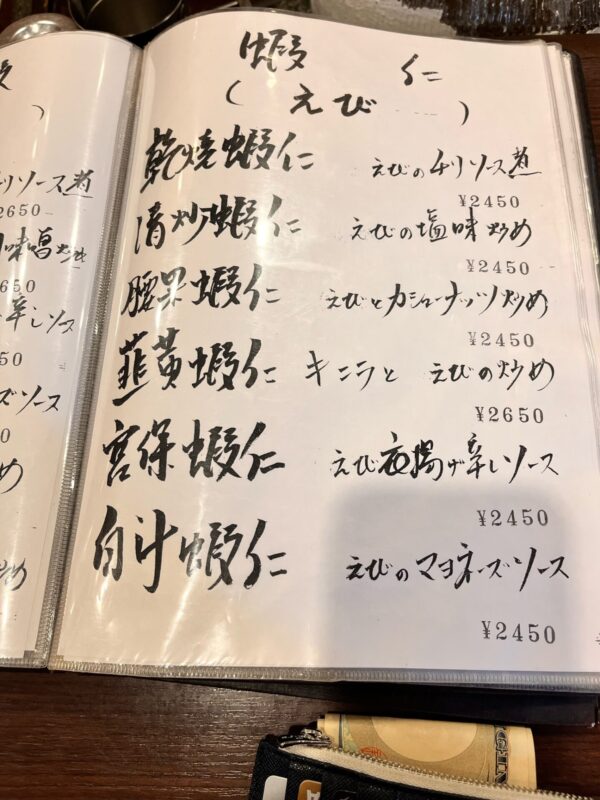 )
チリソース煮
2650
味噌炒め
650
辛しソース
50
ズソース
0
め
炒め
蝦仁
(えび)
乾焼蝦仁 えびのチリソース煮
¥2450
清炒蝦仁 えびの塩味炒め
¥2450
腰果蝦仁 えびとカシューナッツ炒め
¥2450
韮黄蝦仁 キニラと えびの炒め
¥2650
宮保蝦仁 えび衣揚げ辛しソース
¥2450
白汁蝦仁 えびのマヨネーズソース
¥2450